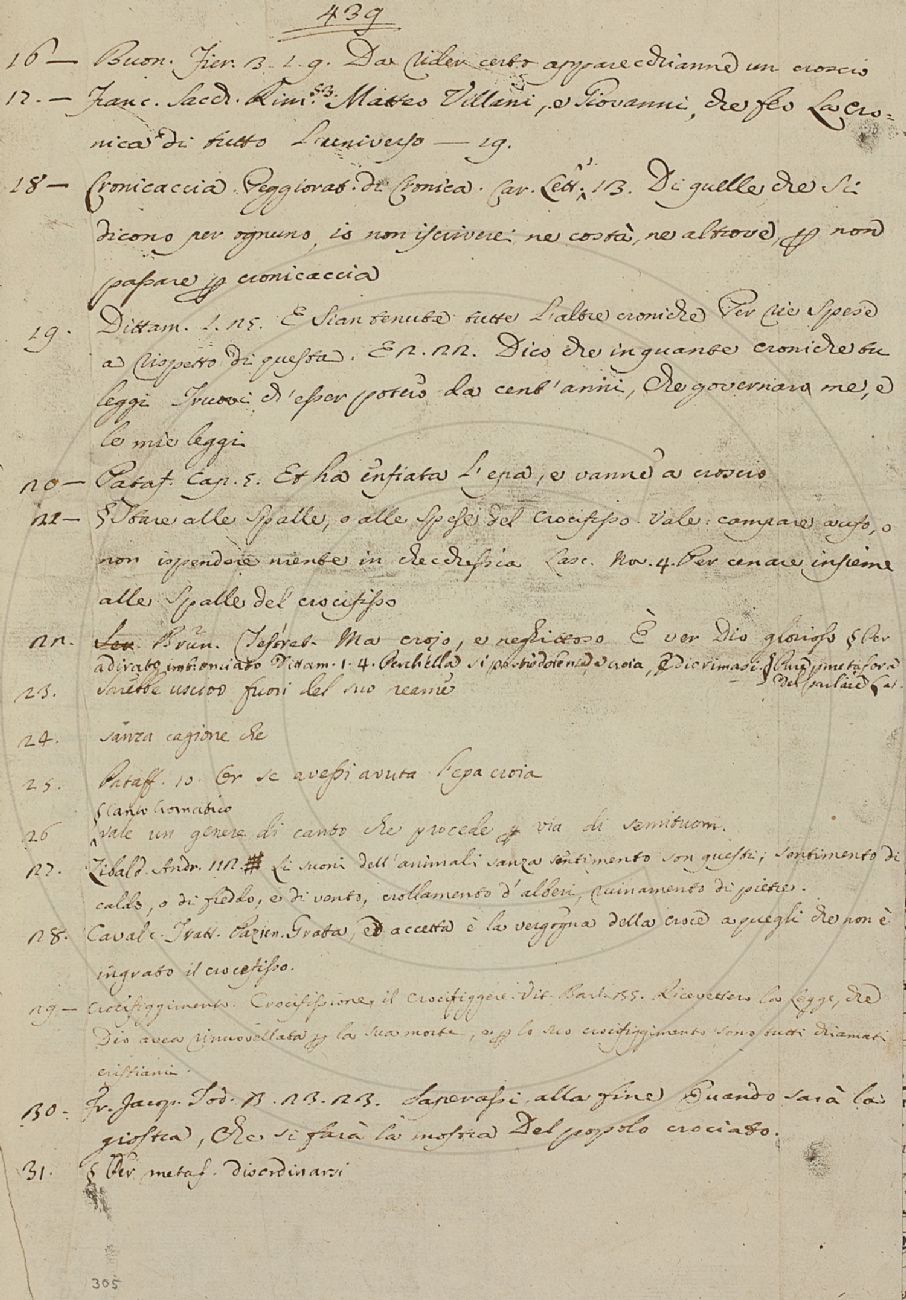 439
16 — Buon. Fier. 3. 2. 9. Da veder certo apparecchianne un croscio
17. — Franc. Sacch. Rim. 53. Matteo Villani, e Giovanni, che feo la cro-
nica di tutto l'universo — 19.
18 — Cronicaccia. Peggiorat. di Cronica. Car. Lett. 1. 13. Di quelle che si
dicono per ognuno, io non iscriverei ne costà, ne altrove, p non
passare p cronicaccia
19. Dittam. 1. 25. E sian tenute tutte l'altre croniche Per vie spese
a rispetto di questa. E 2. 22. Dico che in quante croniche tu
leggi Truovi ch'esser poteo da cent'anni, Che governaro me, e
le mie leggi
20 — Pataf. Cap. 5. Et ha enfiata l'epa, e vanne a croscio
21 — § Stare alle spalle, o alle spese del Crocifisso. Vale: campare a ufo, o
non ispendere niente in checchessia Lasc. Nov. 4. Per cenare insieme
alle spalle del crocifisso
22. Brun. Tesoret. Ma crojo, e neghittoso È ver Dio glorioso § Per
adirato, imbronciato Dittam. 1. 4. Perch'ella si partio dolente, e croia, E di e rimasi. § Pur p metafora
del parlare La
23. sarebbe uscito fuori del suo reame
24. sanza cagione che
25. Pataff. 10. Or se avessi avuta l'epa croia
§ Canto Cromatico
26 vale un genere di canto che procede p via di semituoni.
27. Zibald. Andr. 112. # Li suoni dell'animali sanza sentimento son questi; sentimento di
caldo, o di freddo, e di vento, crollamento d'alberi, ruinamento di pietre.
28. Cavalc. Tratt. Pazien. Grata, ed accetta è la vergogna della croce a quegli che non è
ingrato il crocefisso.
29 — Crocifiggimento. Crocifissione, il crocifiggere. Vit. Barl. 55. Ricevettero la legge, che
Dio avea rinnovellata p la sua morte, e p lo suo crocifiggimento sono tutti chiamati
cristiani.
30. Fr. Jacop. Tod. 3. 23. 23. Saperassi alla fine Quando sarà la
giostra, Che si farà la mostra Del popolo crociato.
31. § Per metaf. disordinarsi
305